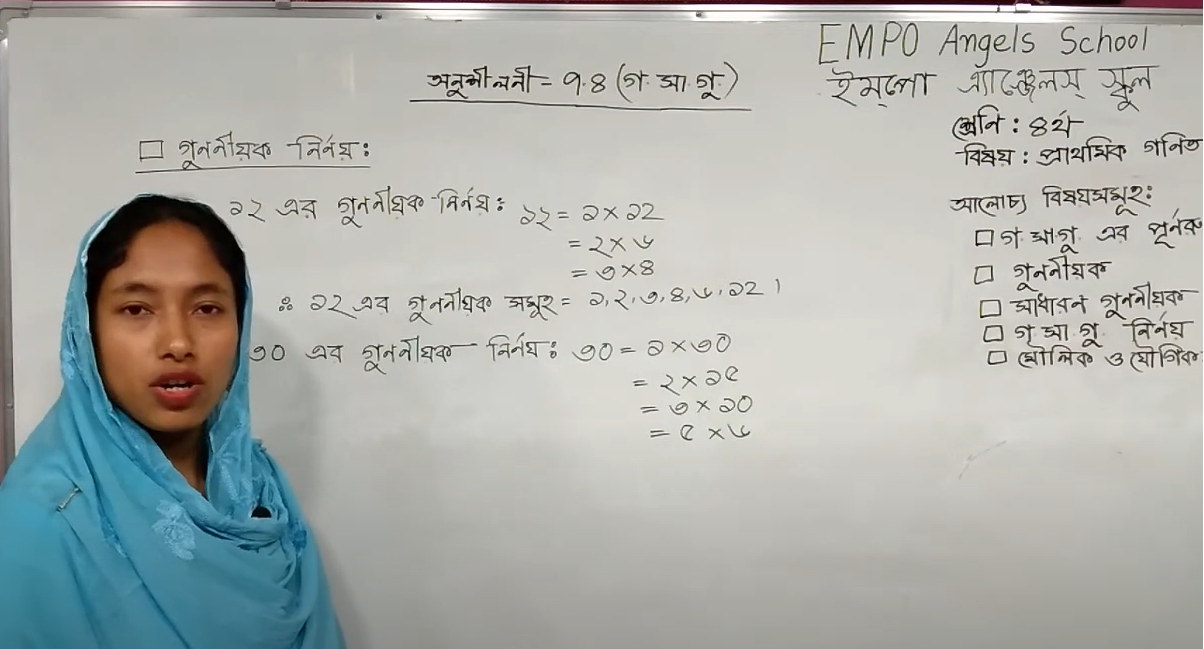 অনুশীলনী = ৭.৪ (গ. সা. গু.)
□ গুননীয়ক নির্নয়ঃ
১২ এর গুননীয়ক নির্নয়ঃ ১২ = ১ × ১২
= ২ × ৬
= ৩ × ৪
∴ ১২ এর গুননীয়ক সমূহ = ১, ২, ৩, ৪, ৬, ১২।
৩০ এর গুননীয়ক নির্নয়ঃ ৩০ = ১ × ৩০
= ২ × ১৫
= ৩ × ১০
= ৫ × ৬
EMPO Angels School
ইম্পো এ্যাঞ্জেলস্ স্কুল
শ্রেনি : ৪র্থ
বিষয় : প্রাথমিক গনিত
আলোচ্য বিষয়সমূহঃ
□ গ. সা. গু. এর পূর্নরূ
□ গুননীয়ক
□ সাধারন গুননীয়ক
□ গ. সা. গু. নির্নয়
□ মৌলিক ও যৌগিক